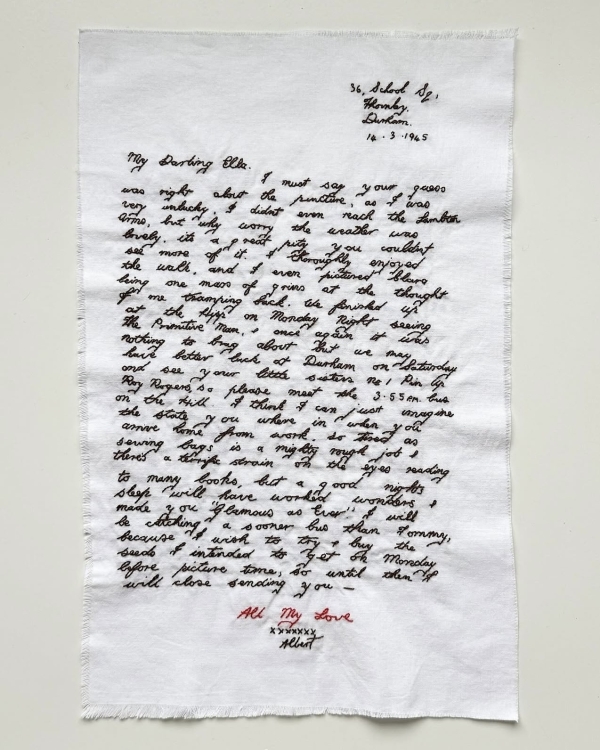 36, School Sq,
Thornley.
Durham.
14 . 3 . 1945
My Darling Ella.
I must say your guess
was right about the puncture, as I was
very unlucky, I didnt even reach the Lambton
Arms, but why worry the weather was
lovely. its a great pity you couldnt
see more of it. I thoroughly enjoyed
the walk. and I even pictured Clara
being one mass of grins at the thought
of me tramping back. We finished up
at the Hipp on Monday Night seeing
the Primitive Man, & once again it was
nothing to brag about but we may
have better luck at Durham on Saturday
and see your little sisters no 1 Pin Up
Roy Rogers, so please meet the 3.55 P.M. bus
on the Hill. I think I can just imagine
the state you where in when you
arrive home from work. so tired as
sewing bags is a mighty rough job &
there's a terrific strain on the eyes reading
to many books, but a good nights
sleep will have worked wonders &
made you "Glamous as Ever" I will
be catching a sooner bus than Tommy,
because I wish to try & buy the
seeds I intended to get on Monday
before picture time, so until then I
will close sending you —
All My Love
xxxxxxx
Albert